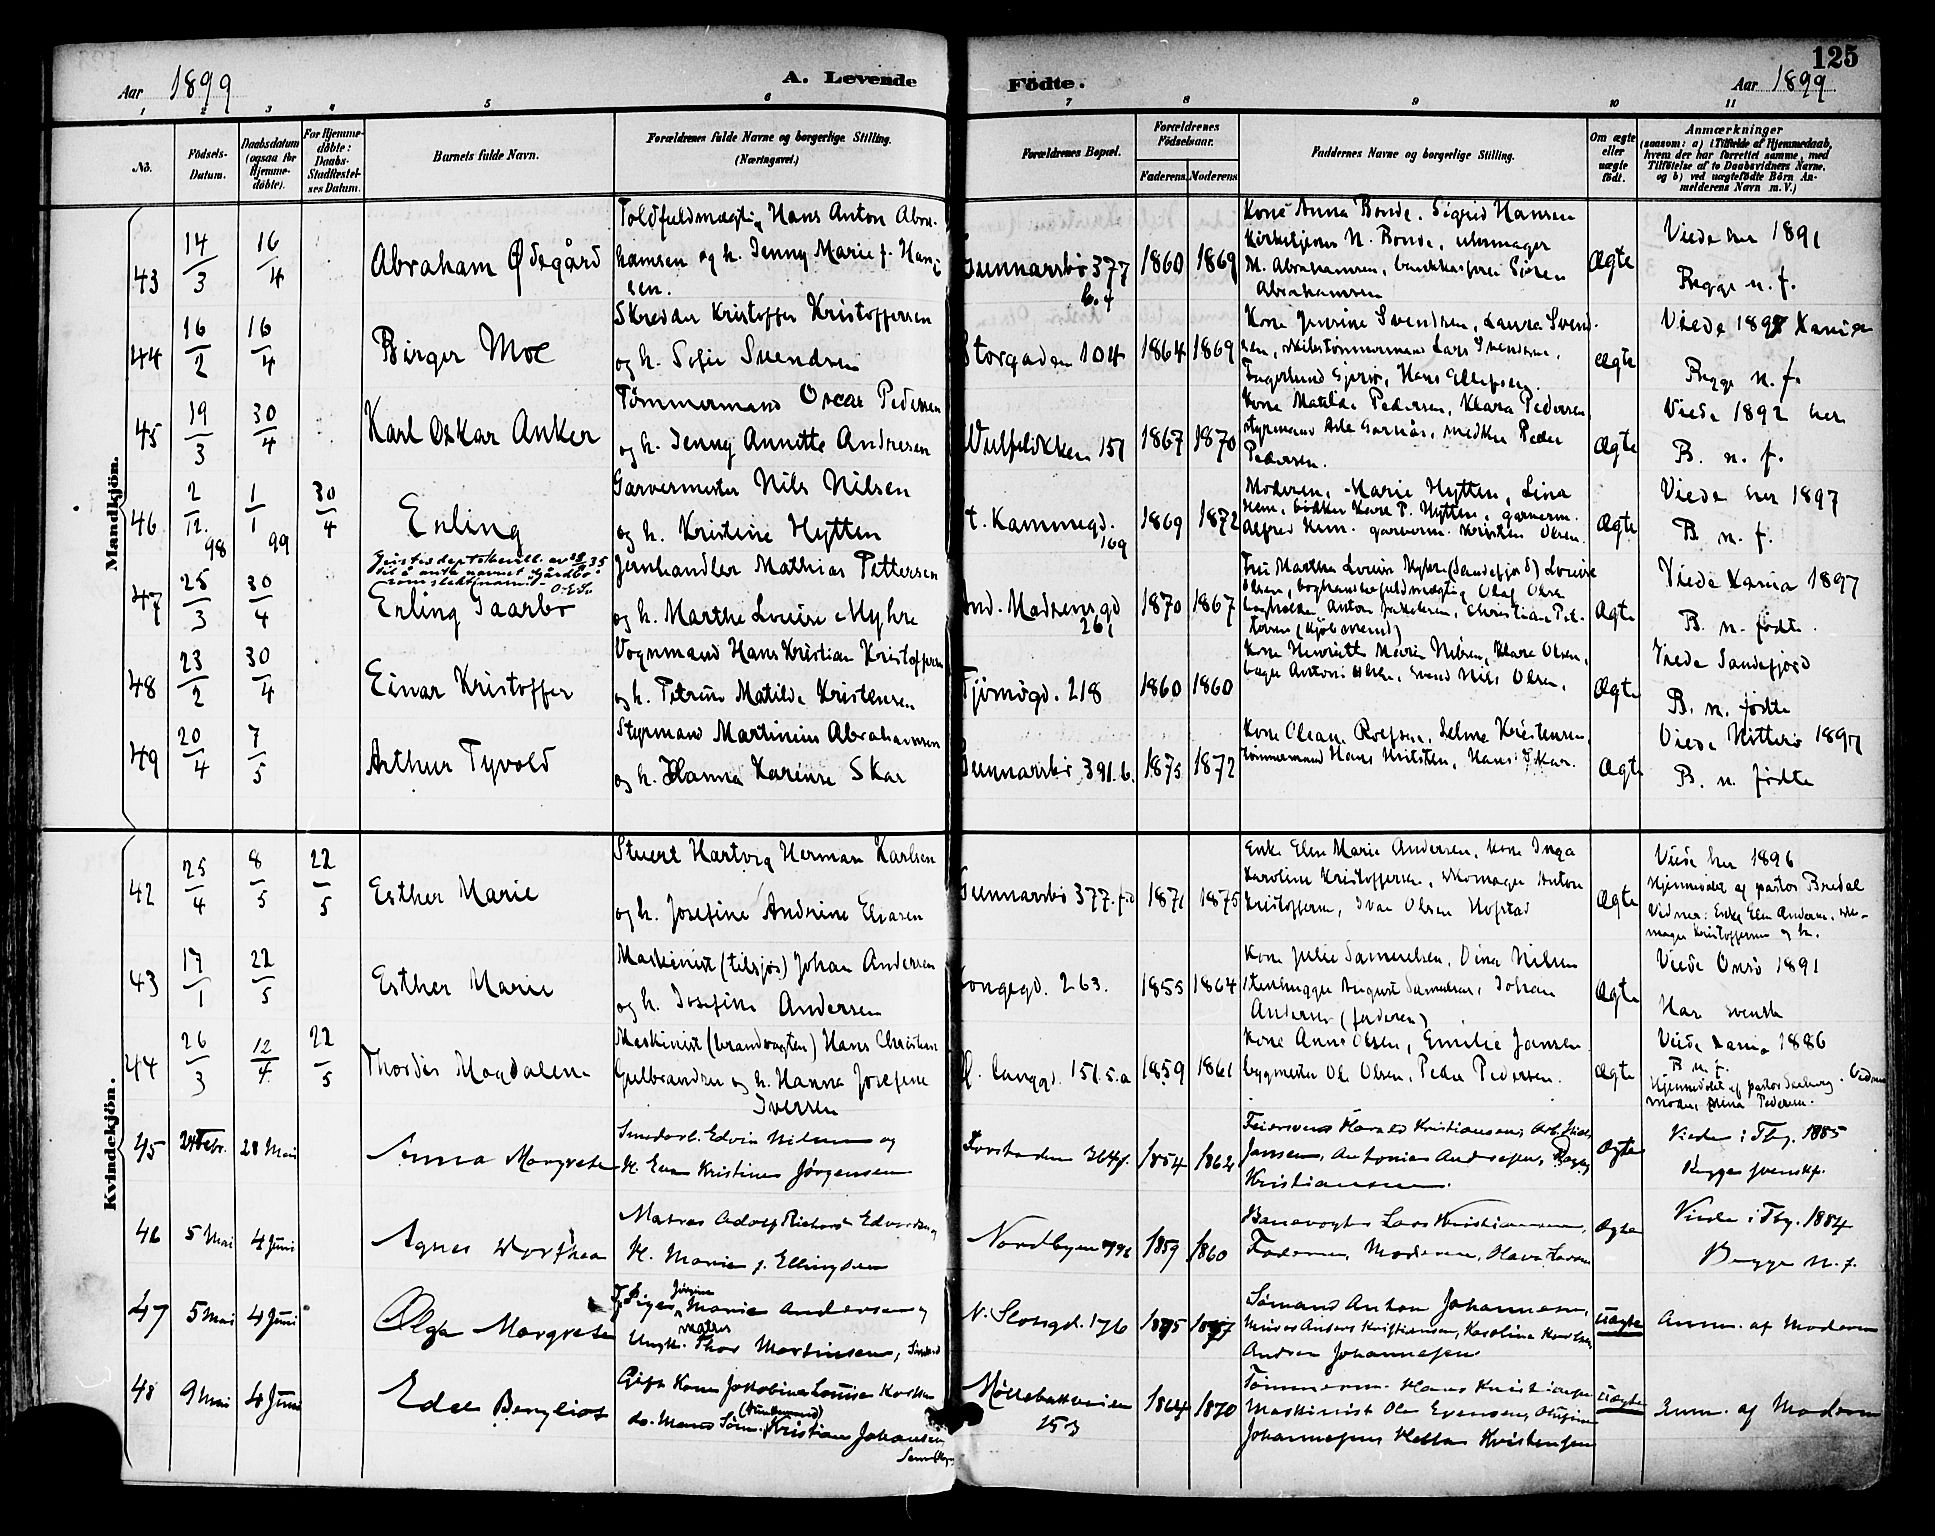 125
Aar 1899
A. Levende
Födte.
Aar 1899
1 2 3 4 5 6 7 8 9 10 11
No.
Födsels-Datum.
Daabsdatum (ogsaa for Hjemme-döbte).
For Hjemme-döbte: Daabs-Stadfæstel-ses Datum.
Barnets fulde Navn.
Forældrenes fulde Navne og borgerlige Stilling. (Næringsvei.)
Forældrenes Bopæl.
Forældrenes Födselsaar.
Faderens. Moderens.
Faddernes Navne og borgerlige Stilling.
Om ægte eller uægte födt.
Anmærkninger
(saasom: a) i Tilfælde af Hjemmedaab, hvem der har forrettet samme, med Tilföielse af to Daabsvidners Navne, og b) ved uægtefödte Börn An-melderens Navn m. V.)
Mandkjön.
43 14/3 16/4 Abraham Ødegård
Toldfuldmægtig Hans Anton Abra-
hamsen og h. Jenny Marie f. Han-
sen.
Gunnarsbö 377 b.4 1860 1869
Kone Anna Bonde. Sigrid Hansen
Kirketjener N. Bonde, uhrmager
M. Abrahamsen, Sören
Abrahamsen
Ægte
Viede her 1891
Begge n. f.
44 16/2 16/4 Birger Moe
Skredder Kristoffer Kristoffersen
og h. Sofie Svendsen
Storgaden 104 1864 1869
Kone Svendsen, Laura Svend-
sen, skibstømmermand Lars Svendsen,
Hans Ellefsen.
ægte
Viede 1897 Xania
Begge n. f.
45 19/3 30/4 Karl Oskar Anker
Tømmermand Oscar Pedersen
og h. Jenny Annette Andresen
Wulfsløkken 151 1867 1870
Kone Matilde Pedersen, Klara Pedersen
styrmand Garnås, snedker Peder
Pedersen.
Ægte
Viede 1892 her
B. n. f.
46 2/12 98 1/1 99 30/4 Erling
Garvermester Nils Nilsen
og h. Kristine Hytten
St. Kammegd. 169 1869 1872
Moderen, Marie Hytten, Lina
Hem, bødker Kare P. Hytten, garverm.
Alfred Hem. garverm. Kristen Olsen.
Ægte
Viede her 1897
B. n. f.
47 25/3 30/4 Erling Gaarbo
til å anta navnet Gårdbo
som slektsnavn. O.E.S.
Jernhandler Mathias Pettersen
og h. Marthe Louise Myhre
And. Madsensgd 261 1870 1867
Fru Marthea Louise Myhre (Sandefjord) Louise
Olsen, Olaf Olsen
bogholder Anton Jakobsen, Christian Pet-
tersen (kjøbmand)
Ægte
Viede Xania 1897
B. n. fødte.
48 23/2 30/4 Einar Kristoffer
Vognmand Hans Kristian Kristoffersen
og h. Petrine Matilde Kristensen
Tjömögd. 218 1860 1860
Kone Henriette Marie Nilsen, Klara Olsen,
bager Anton Olsen, Svend Nils Olsen,
Ægte
Viede Sandefjord
B. n. fødte
49 20/4 7/5 Arthur Tyvold
Styrmand Martinius Abrahamsen
og h. Hanna Karense Skar
Gunnarsbö 391.b. 1875 1872
Kone Oleane Roefsen, Selma Kristensen,
tømmermand Hans Nilsten, Hans Skar.
Ægte
Viede Nötterö 1897
B. n. fødte
Kvindekjön.
42 25/4 8/5 22/5 Esther Marie
Stuert Hartvig Herman Karlsen
og h. Josefine Andrine Eliasen
Gunnarsbö 377. 1871 1875
Enke Elen Marie Andersen, kone Inga
Karoline Kristoffersen, skomager Anton
Kristoffersen, Ivar Olsen Hofstad
Ægte
Viede her 1896
Hjemmedøbt af pastor Bredal
Vidner: Enke Elen Andersen, sko-
mager Kristoffersen og h.
43 17/1 22/5 Esther Marie
Maskinist (tilsjøs) Johan Andersen
og h. Josefine Andersen
Kongegd. 263. 1855 1864
Kone Julie Samuelsen, Dina Nilsen
stenhugger August Samuelsen, Johan
Andersen (faderen)
Ægte
Viede Onsö 1891
Han svensk
44 26/3 12/4 22/5 Thordis Magdalene
Maskinist (brandvagten) Hans Christian
Gulbrandsen og h. Hanna Josefine
Iversen
Ø. Langgd. 151.5.a 1859 1861
Kone Anne Olsen, Emilie Jansen
bygmester Ole Olsen, Peder Pedersen.
Ægte
Viede Xania 1886
B. n. f.
Hjemmedøbt af pastor Vidner
moder, Pedersen.
45 24 Febr. 28 Mai Anna Margrete
Smedarb. Edvin Nilsen og
H. Eva Kristine Jørgensen
Forstaden 364 1854 1862
Feiersvend Harald Kristiansen, Arb. Nils
Jansen, Antonie Andresen,
Kristiansen.
Ægte
Viede i Tbg. 1885
Begge svensk f.
46 5 Mai 4 Juni Agnes Dorthea
Matros Adolf Richard Edvardsen og
H. Marie f. Ellingsen
Nordbyen 1859 1860
Banevogter Lars Kristiansen,
Faderen, Moderen, Olava Larsen
Ægte
Viede i Tbg. 1884
Begge n. f.
47 5 Mai 4 Juni Olga Margrete
Pigen Jørgine Marie Andersen og
Ungk. matros Thor Martinsen,
N. Slotsgd. 176 1875 1877
Sømand Anton Johannesen,
Murer Anders Kristiansen, Karoline
Andrea Johannesen
Uægte
Anm. af Moderen
48 9 Mai 4 Juni Edel Bergliot
Gift Kone Jakobine Louise
Kristian Johansen
Möllebakkveien 153 1864 1870
Tømmerm. Hans Kristiansen
Maskinist Ole Evensen,
Johannesen, Kristensen
Uægte
Anm. af Moderen